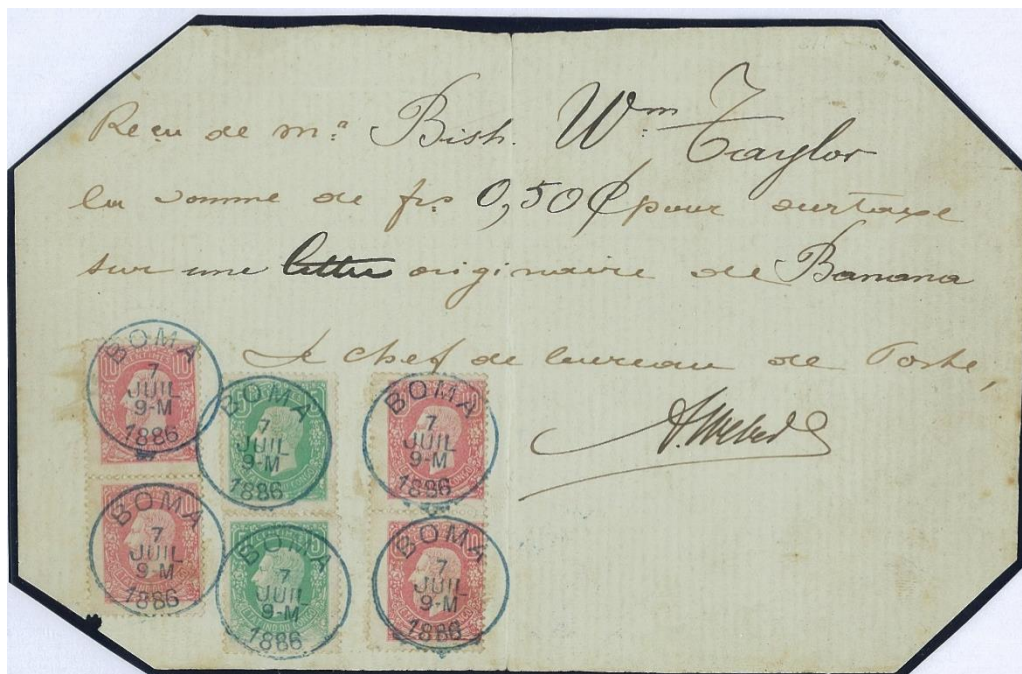 Reçu de mr Bish. Wm Taylor
la somme de frs 0,50 ¢ pour surtaxe
sur une lettre originaire de Banana
Le chef de bureau de Poste,
BOMA
7
JUIL
9-M
1886
BOMA
7
JUIL
9-M
1886
BOMA
7
JUIL
9-M
1886
BOMA
7
JUIL
9-M
1886
BOMA
7
JUIL
9-M
1886
BOMA
7
JUIL
9-M
1886